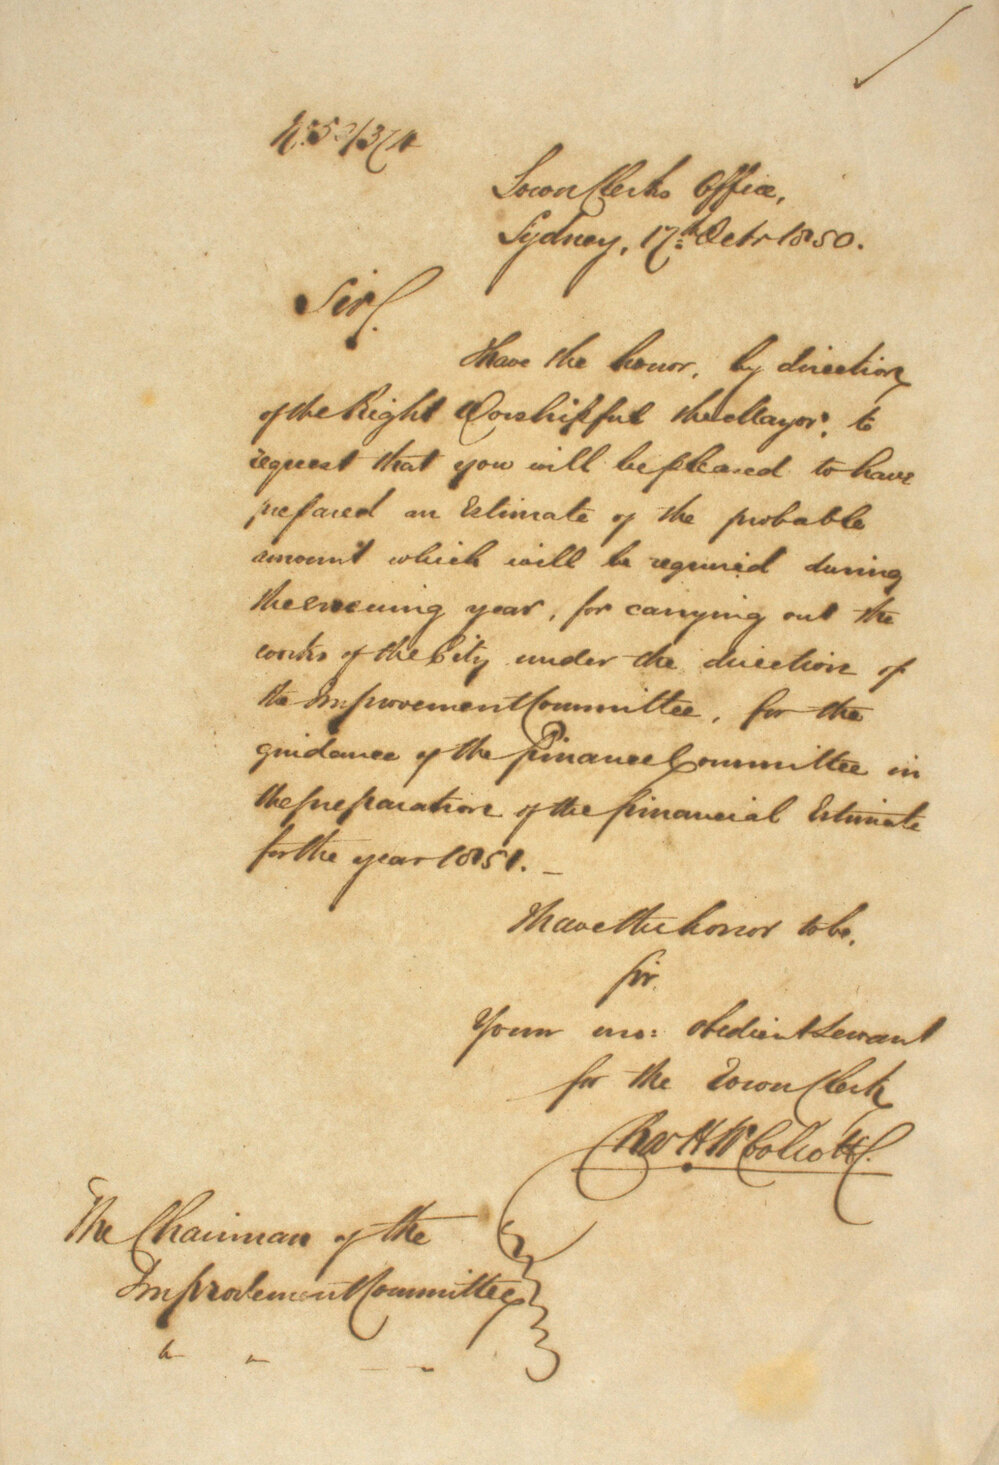 No. 50/374
Town Clerks Office,
Sydney, 17th Octr 1850.
Sir,
I have the honor, by direction
of the Right Worshipful the Mayor, to
request that you will be pleased to have
prepared an Estimate of the probable
amount which will be required during
the ensuing year, for carrying out the
works of the City under the direction of
the Improvement Committee, for the
guidance of the Finance Committee in
the preparation of the financial Estimate
for the year 1851. _
I have the honor to be,
Sir
Your mo: obedient Servant
for the Town Clerk
Chas H
The Chairman of the
Improvement Committee